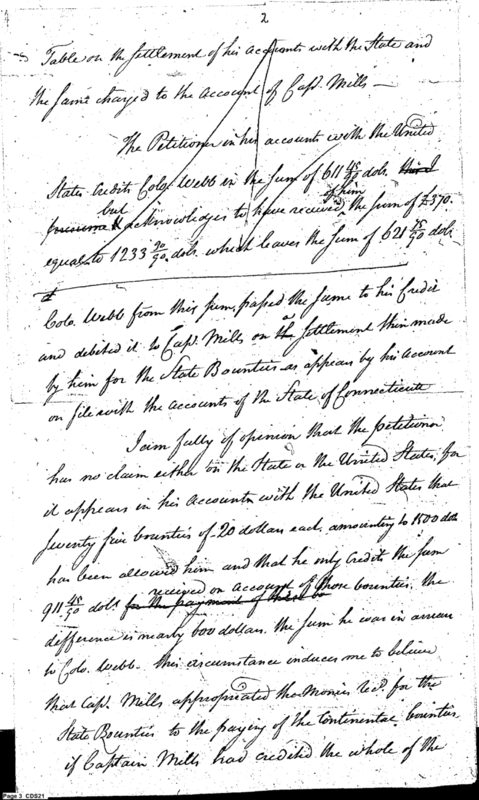 2
Table on the settlement of his accounts with the State and
the same charged to the account of Capt. Mills —
The Petitioner in his accounts with the United
States Credits Colo. Webb in the sum of 611 45/90 dols.
but acknowledges to have received of him the sum of £370.
equal to 1233 30/90 dols. which leaves the sum of 621 75/90 dols.
Colo. Webb from this sum, passed the same to his Credit
and debited it to Capt. Mills on a settlement then made
by him for the State Bounties as appears by his account
on file with the accounts of the State of Connecticut
I am fully of opinion that the petitioner
has no claim either on the State or the United States, for
it appears in his accounts with the United States that
seventy five bounties of 20 dollars each amounting to 1500 dols
has been allowed him and that he only credits the sum
911 45/90 dols for the payment of these bo received on account of those bounties. the
difference is nearly 600 dollars. the sum he was in arrear
to Colo. Webb. this circumstance induces me to believe
that Capt. Mills appropriated the Monies recd. for the
State Bounties to the paying of the Continental bounties
if Captain Mills had credited the whole of the
Page 3 CDS21